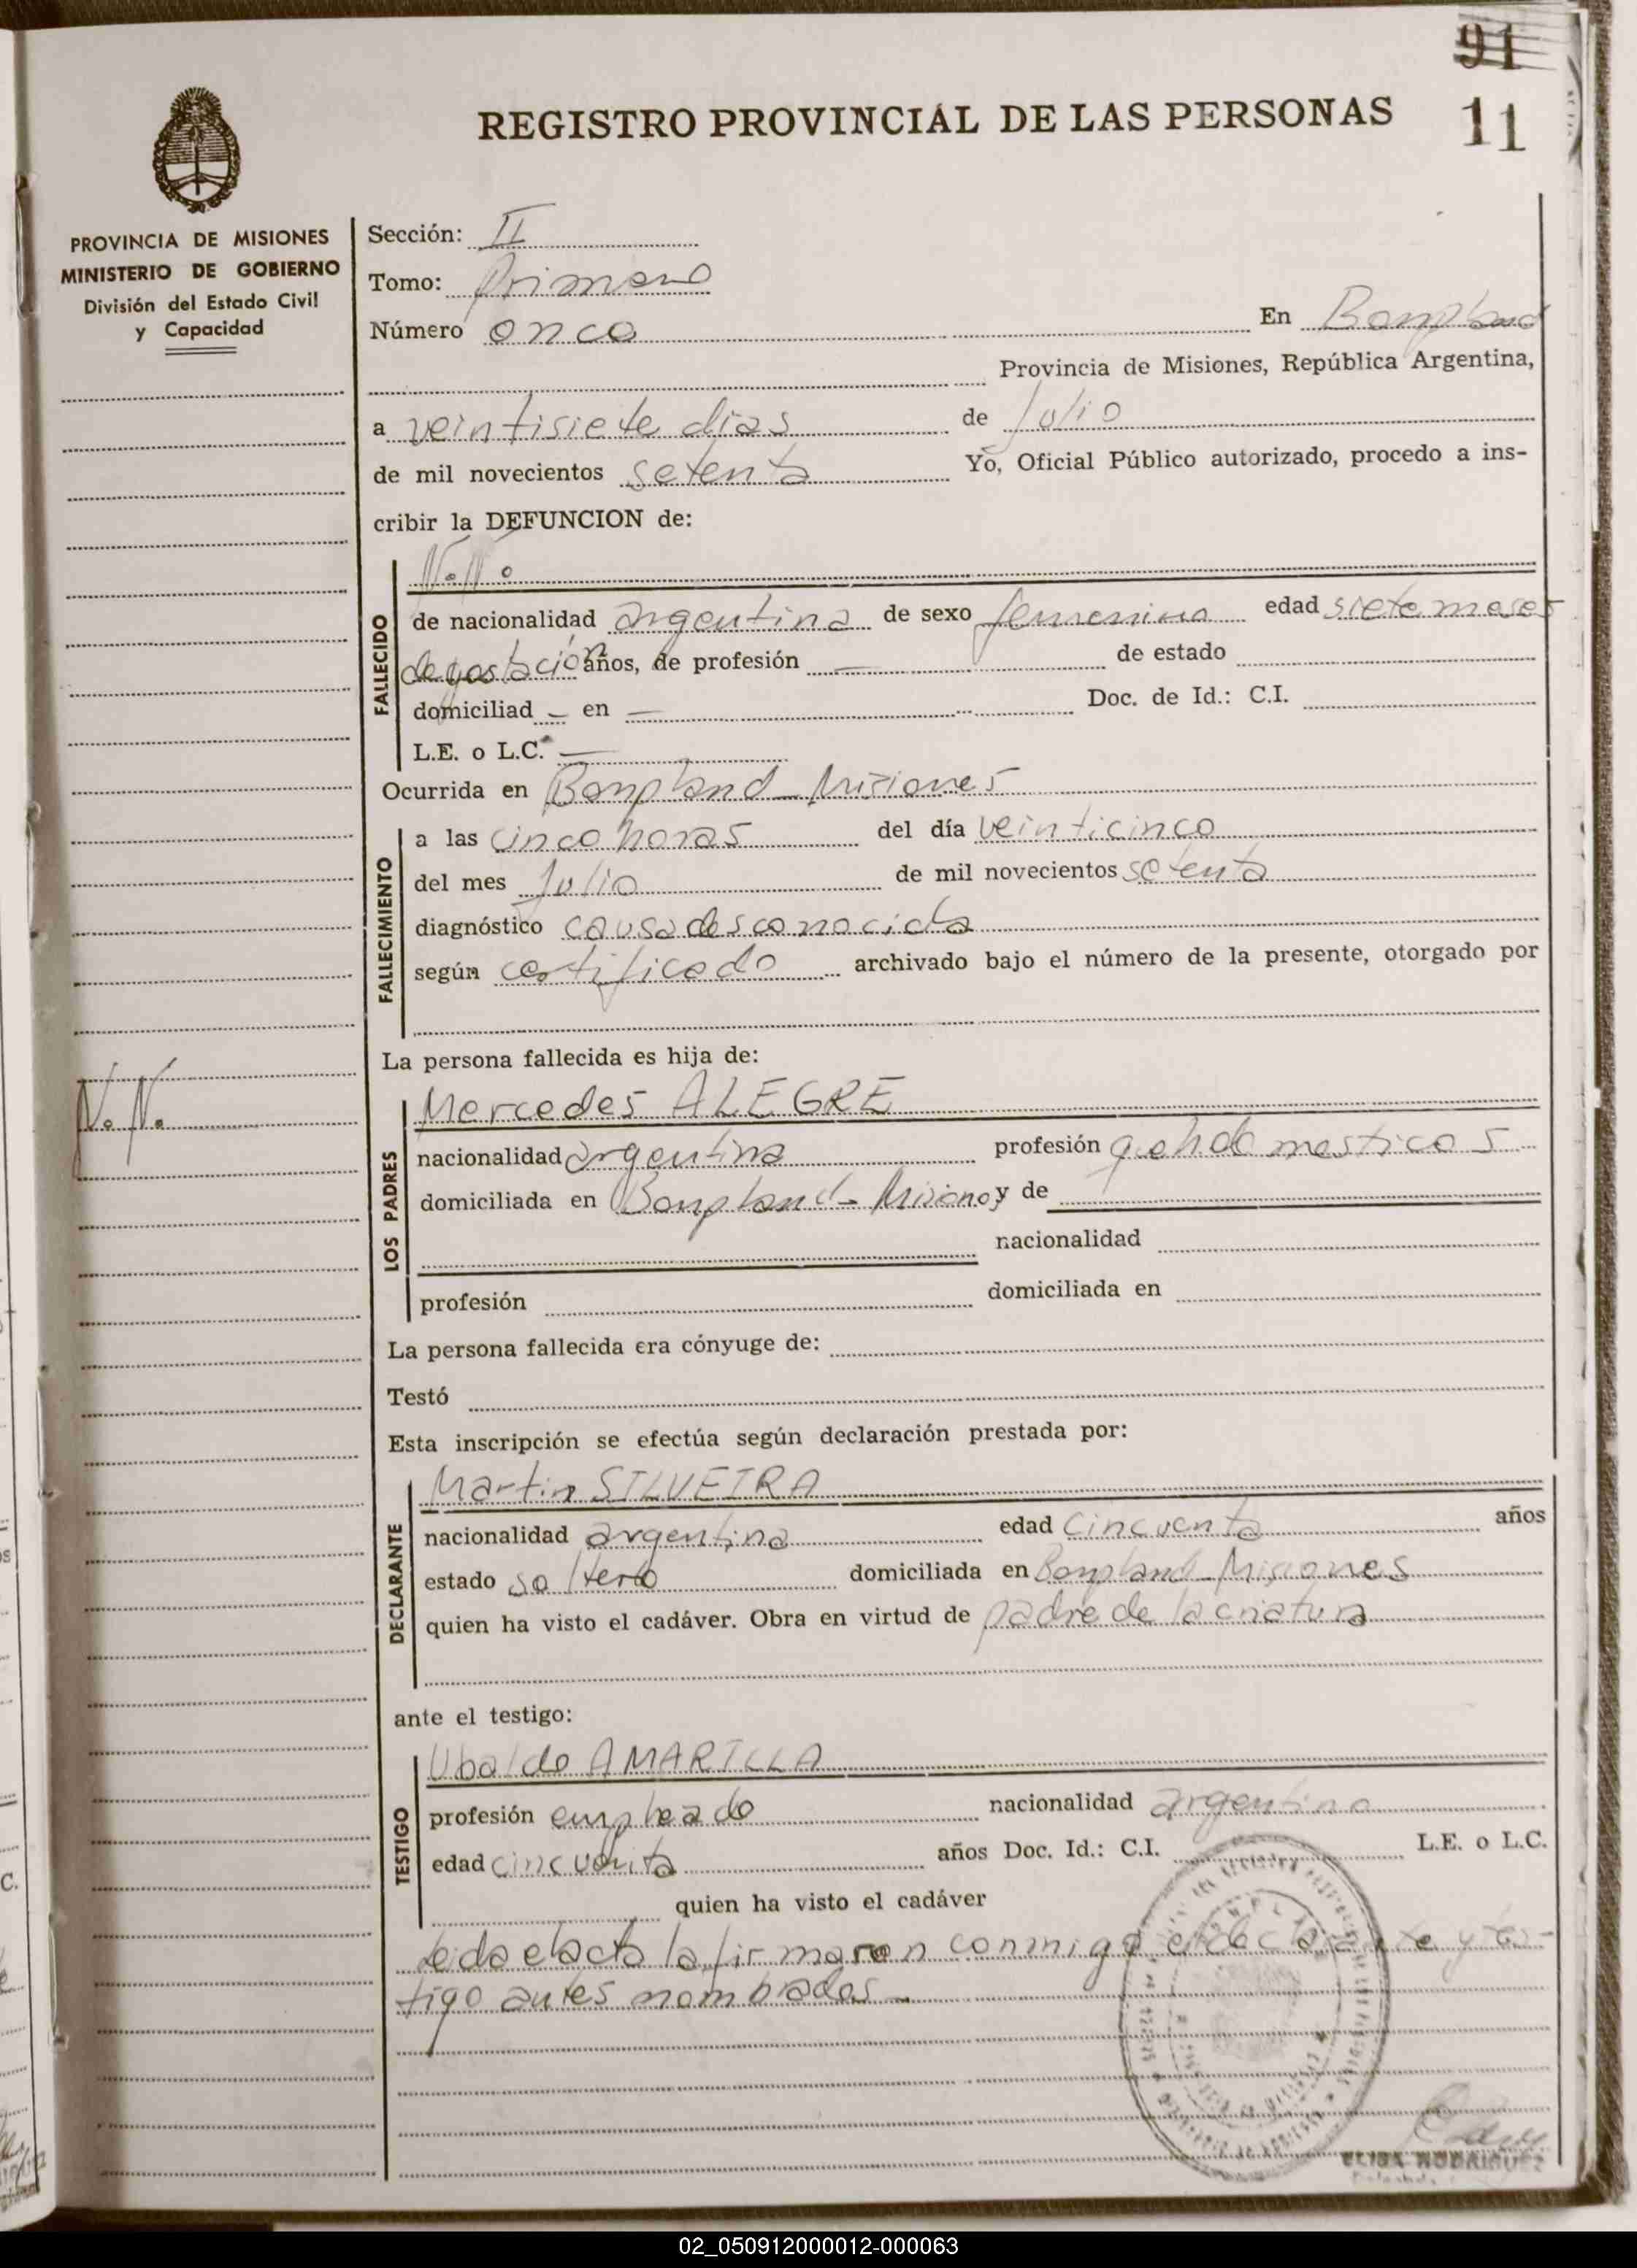 91
REGISTRO PROVINCIAL DE LAS PERSONAS 11
PROVINCIA DE MISIONES
MINISTERIO DE GOBIERNO
División del Estado Civil
y Capacidad
Sección: II
Tomo: Primero
Número once En Bonpland
Provincia de Misiones, República Argentina,
a veintisiete dias de Julio
de mil novecientos setenta Yo, Oficial Público autorizado, procedo a ins-
cribir la DEFUNCION de:
N.N.
FALLECIDO
de nacionalidad argentina de sexo femenino edad siete meses
de gestación años, de profesión — de estado
domiciliad — en — Doc. de Id.: C.I.
L.E. o L.C. —
Ocurrida en Bonpland - Misiones
FALLECIMIENTO
a las cinco horas del día veinticinco
del mes Julio de mil novecientos setenta
diagnóstico causa desconocida
según certificado archivado bajo el número de la presente, otorgado por
La persona fallecida es hija de:
N.N.
LOS PADRES
Mercedes ALEGRE
nacionalidad argentina profesión queh domesticos
domiciliada en Bonpland - Misiones y de
nacionalidad
profesión domiciliada en
La persona fallecida era cónyuge de:
Testó
Esta inscripción se efectúa según declaración prestada por:
DECLARANTE
Martin SILVEIRA
nacionalidad argentina edad cincuenta años
estado soltero domiciliada en Bonpland - Misiones
quien ha visto el cadáver. Obra en virtud de padre de la criatura
ante el testigo:
TESTIGO
Ubaldo AMARILLA
profesión empleado nacionalidad argentina
edad cincuenta años Doc. Id.: C.I. L.E. o L.C.
quien ha visto el cadáver
leida el acta la firmaron conmigo el declarante y tes-
tigo antes nombrados -
ELISA RODRIGUEZ
02_050912000012-000063